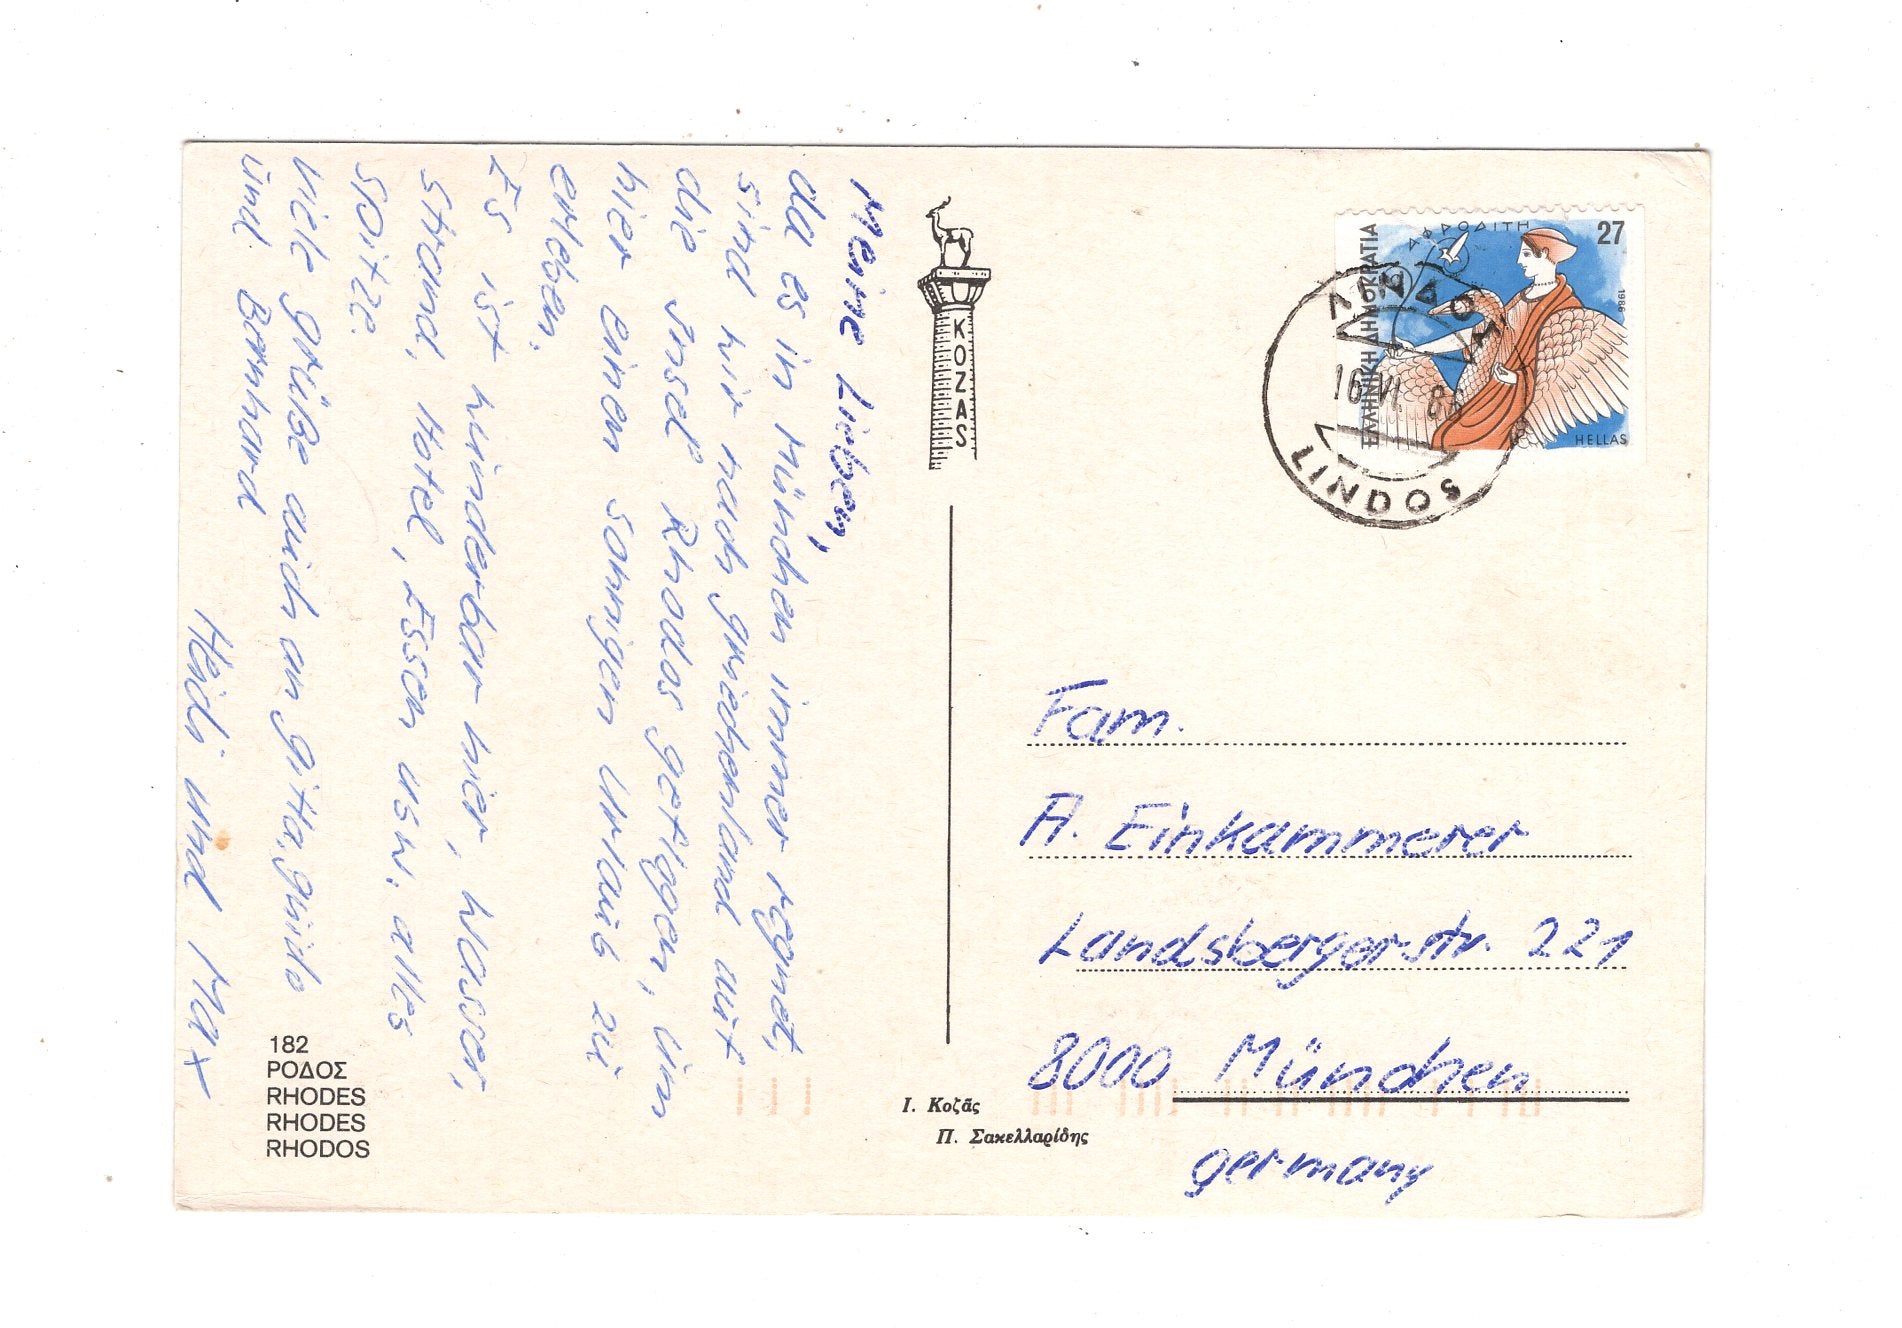 Meine Lieben,
da es in München immer regnet,
sind wir nach griechenland auf
die Insel Rhodos geflogen, um
hier einen sonnigen Urlaub zu
erleben.
Es ist wunderbar hier, Wasser,
Strand, Hotel, Essen usw. alles
spitze.
Viele grüße auch an gitta, guido
und Bernhard
Heidi und Max
182
ΡΟΔΟΣ
RHODES
RHODES
RHODOS
KOZAS
Ι. Κοζᾶς
Π. Σακελλαρίδης
27
ΑΦΡΟΔΙΤΗ
ΕΛΛΗΝΙΚΗ ΔΗΜΟΚΡΑΤΙΑ
1986
HELLAS
ΛΙΝΔΟΣ
16 VI
LINDOS
Fam.
A. Einkammerer
Landsbergerstr. 221
8000 München
germany